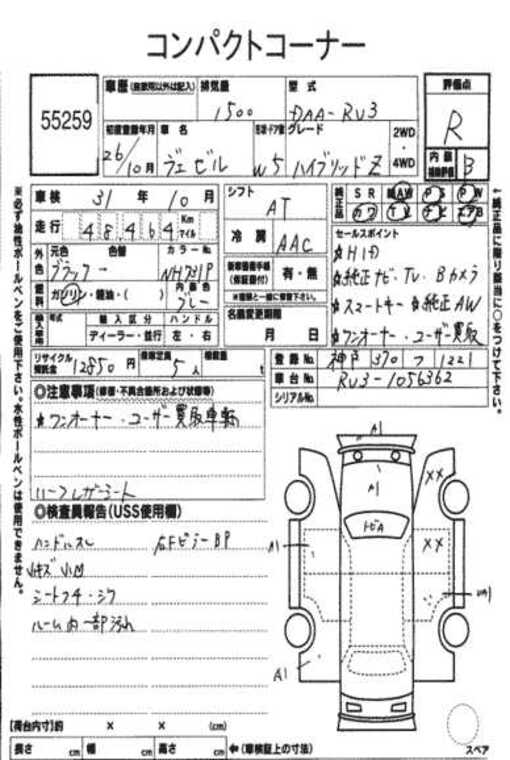 コンパクトコーナー
55259
車歴 (自家用以外は記入) 排気量 型式 評価点
1500 DAA-RU3
R
初度登録年月 車名 形状・ドア数 グレード 2WD・4WD
26/10月 ヴェゼル W5 ハイブリッドZ
内装補助評価 B
車検 31年10月 シフト AT
純正品 SR AW PS PW
カワ TV ナビ エアB
走行 48464 Km マイル
冷房 AAC
セールスポイント
☆HID
☆純正ナビ・TV・Bカメラ
☆スマートキー☆純正AW
☆ワンオーナー・ユーザー買取
外色 元色 色替 カラーNo.
ブラック― NH731P
燃料 ガソリン・軽油・( ) 内装色 グレー
新車整備手帳(保証書付) 有・無
名義変更期限
月 日
輸入車使用 年式 輸入区分 ハンドル
ディーラー・並行 左・右
リサイクル預託金 12850円 乗車定員 5人 積載量 t
登録No. 神戸 370 つ 1221
車台No. RU3-1056362
シリアルNo.
◎注意事項(修復・不具合箇所および状態等)
☆ワンオーナー・ユーザー買取車輌
ハーフレザーシート
◎検査員報告(USS使用欄)
ハンドルスレ 右FピラーBP
小キズ 小凹
シートコゲ・シワ
ルーム内一部汚れ
A1
A1
XX
トビA
A1
XX
A1
【荷台内寸】約 × × (cm)
長さ cm 幅 cm 高さ cm ←(車検証上の寸法)
スペア
※必ず油性ボールペンをご使用下さい。水性ボールペンは使用できません。
←純正品に限り該当に○をつけて下さい。